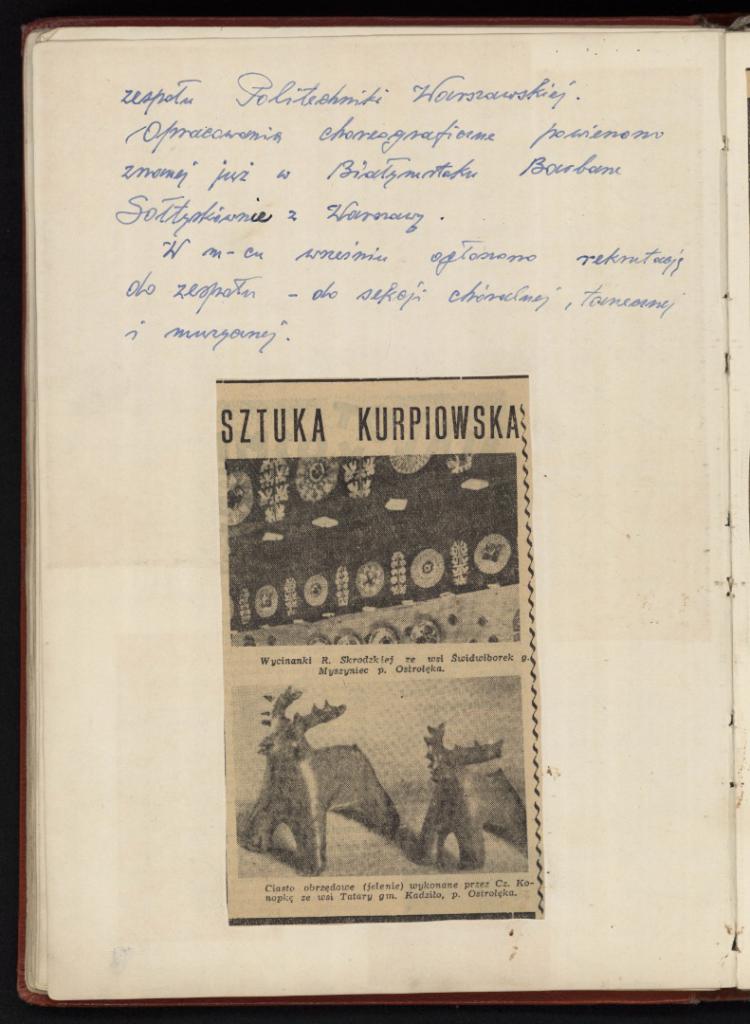 zespołu Politechniki Warszawskiej.
Opracowania choreograficzne powierzono
znanej już w Białymstoku Barbarze
Sołtyskównie z Warszawy.
W m-cu wrześniu ogłoszono rekrutację
do zespołu - do sekcji chóralnej, tanecznej
i muzycznej.
SZTUKA KURPIOWSKA
Wycinanki R. Skrodzkiej ze wsi Świdwiborek g.
Myszyniec p. Ostrołęka.
Ciasto obrzędowe (jelenie) wykonane przez Cz. Ko-
nopkę ze wsi Tatary gm. Kadziło, p. Ostrołęka.